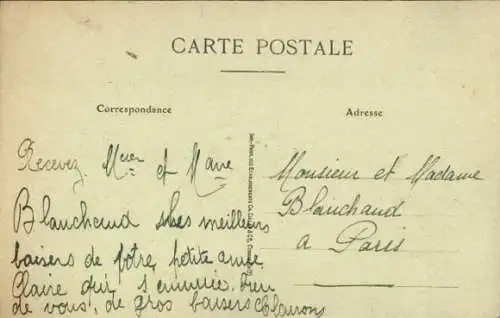 CARTE POSTALE
Correspondance
Adresse
Recevez Mr et Mme
Blanchaud les meilleurs
baisers de votre petite amie
Claire qui s'ennuie
de vous, de gros baisers
Monsieur et Madame
Blanchaud
a Paris